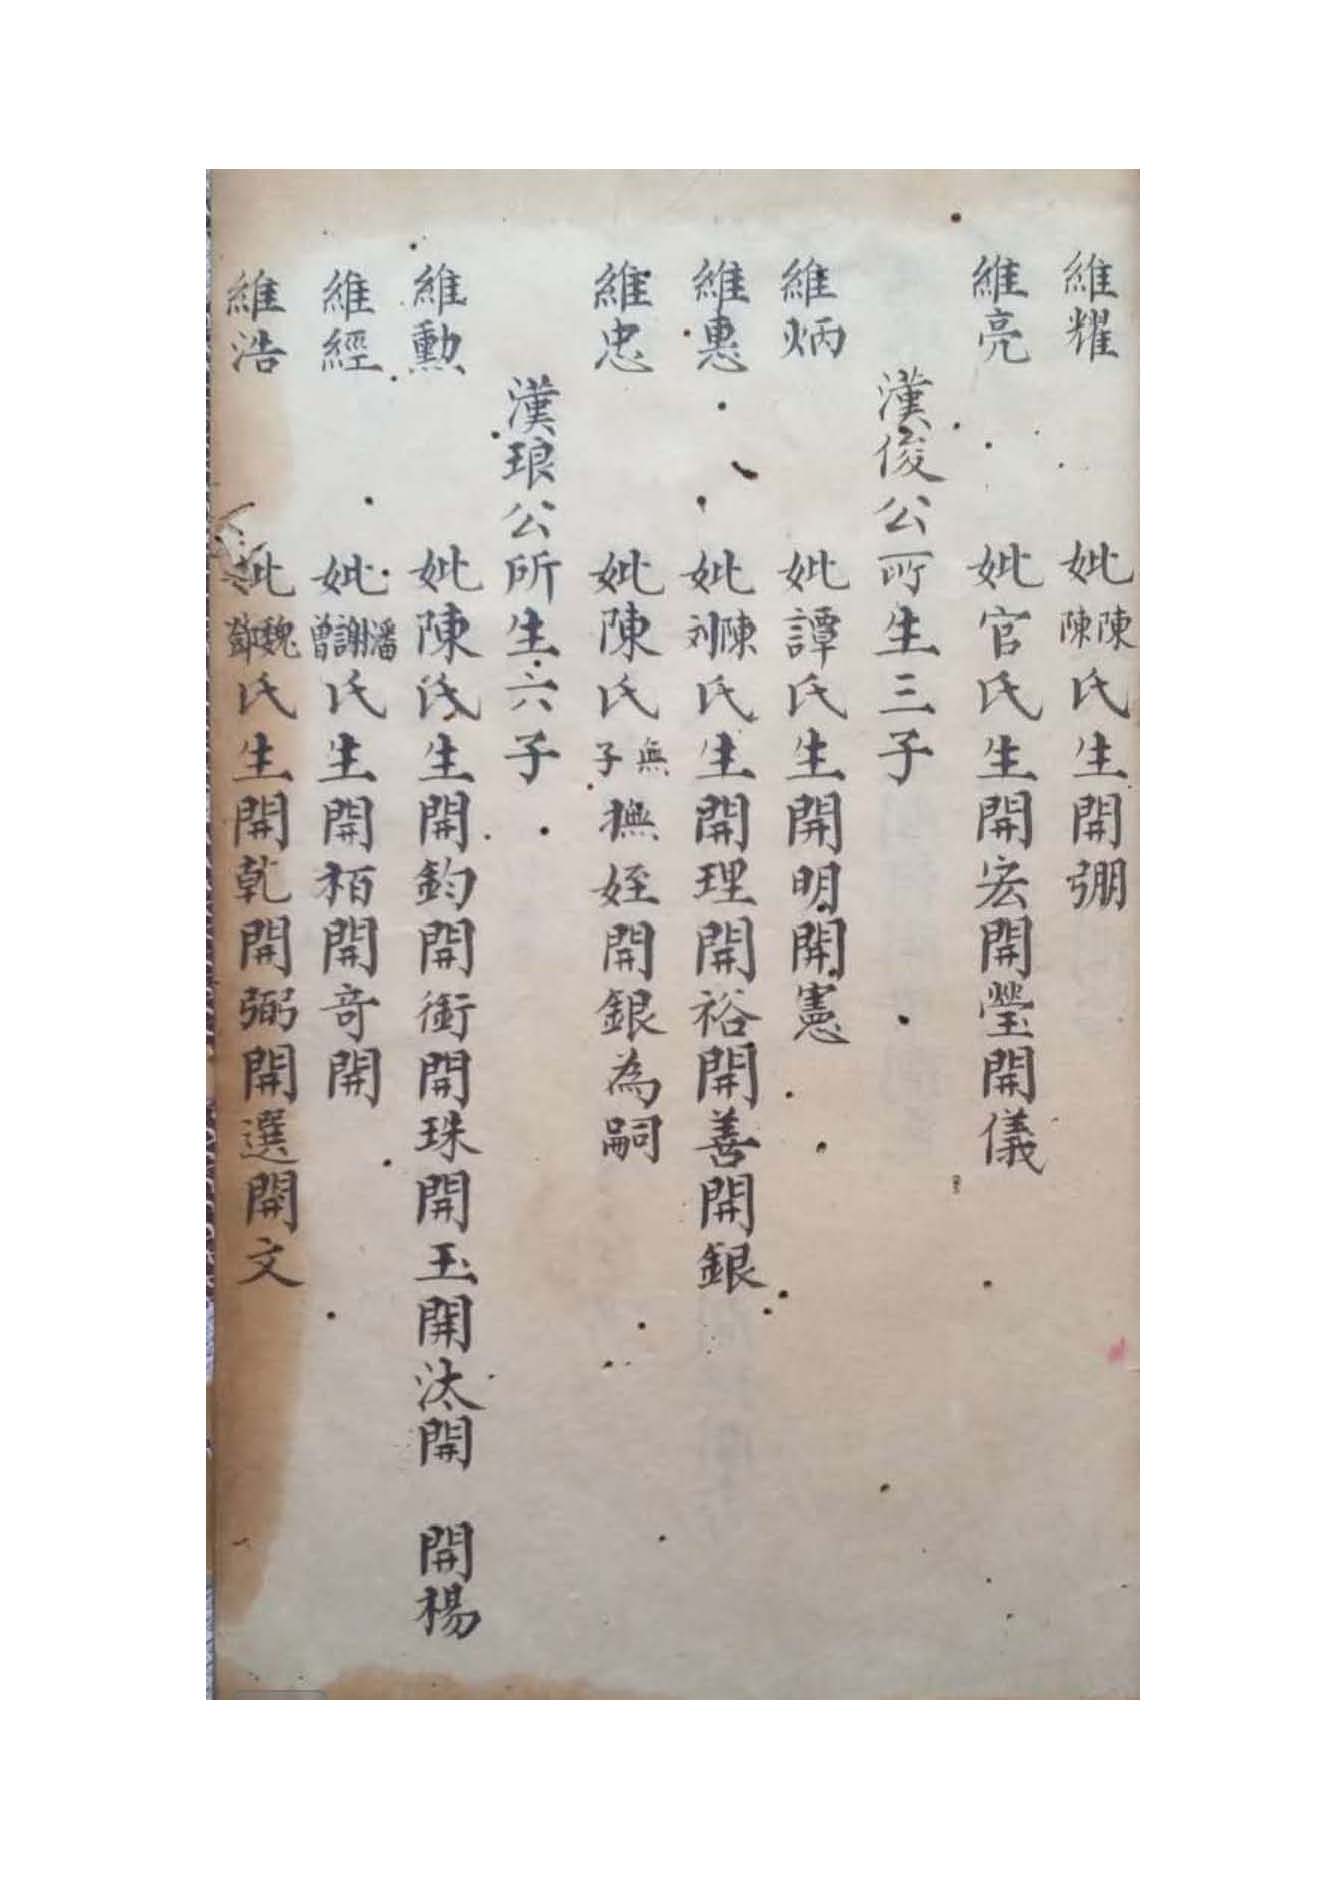 維耀 妣陳陳氏生開弸
維亮 妣官氏生開宏開瑩開儀
漢俊公所生三子
維炳 妣譚氏生開明開憲
維惠 妣陳刘氏生開理開裕開善開銀
維忠 妣陳氏無子撫姪開銀為嗣
漢琅公所生六子
維勳 妣陳氏生開鈞開衛開珠開玉開汰開 開楊
維經 妣潘謝曾氏生開栢開奇開
維浩 妣魏鄧氏生開乾開弼開選開文